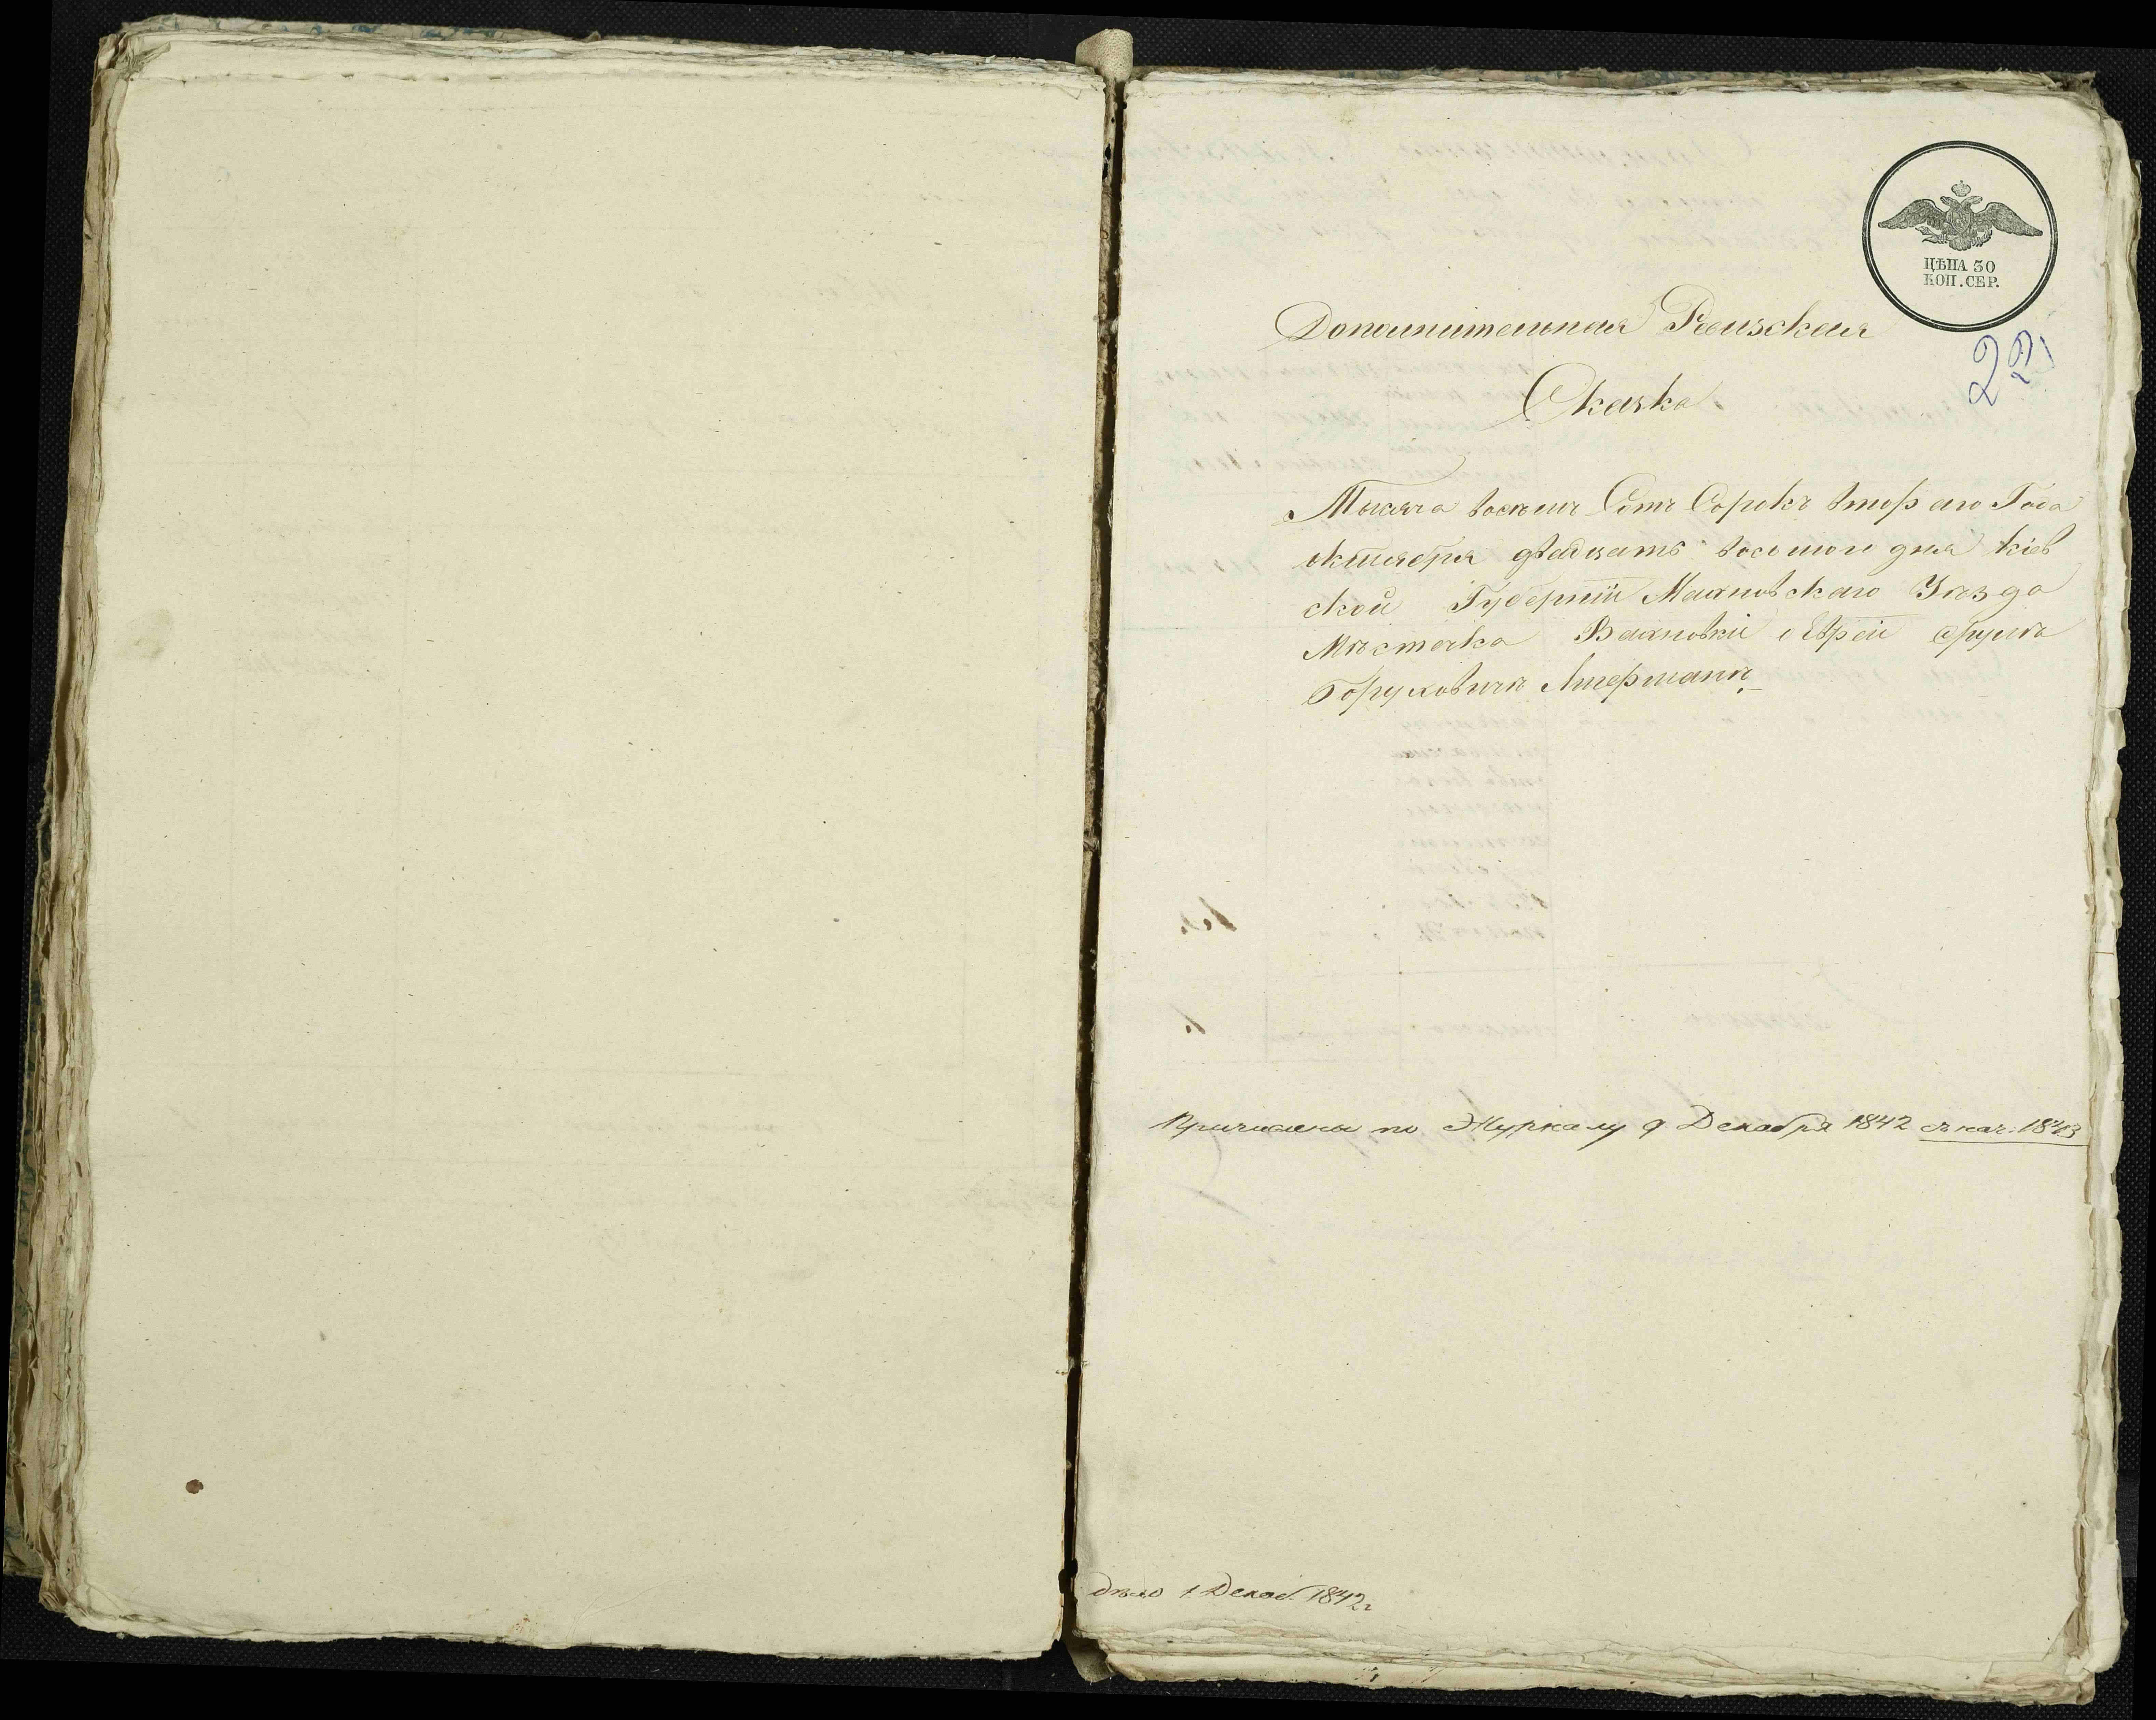 ЦѢНА 30
КОП. СЕР.
22
Дополнительная Ревизская
Сказка
Тысяча восемь Сотъ Сорокъ втораго Года
октября двадцать восьмого дня Кіев
ской Губерніи Махновскаго Уѣзда
Мѣстечка Вахновки Еврей
Боруховичъ
Причислены по Журналу 9 Декабря 1842 съ нач: 1843
дѣло 1 Декаб. 1842 г